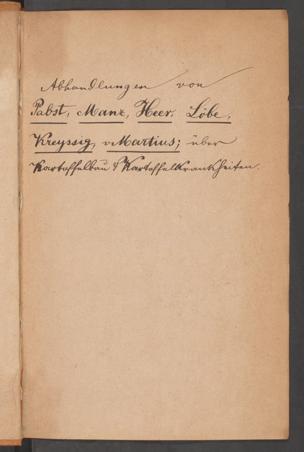 Abhandlungen von
Pabst, Manz, Heer, Löbe,
Kreyssig, v Martius; über
Kartoffelbau & Kartoffelkrankheiten.